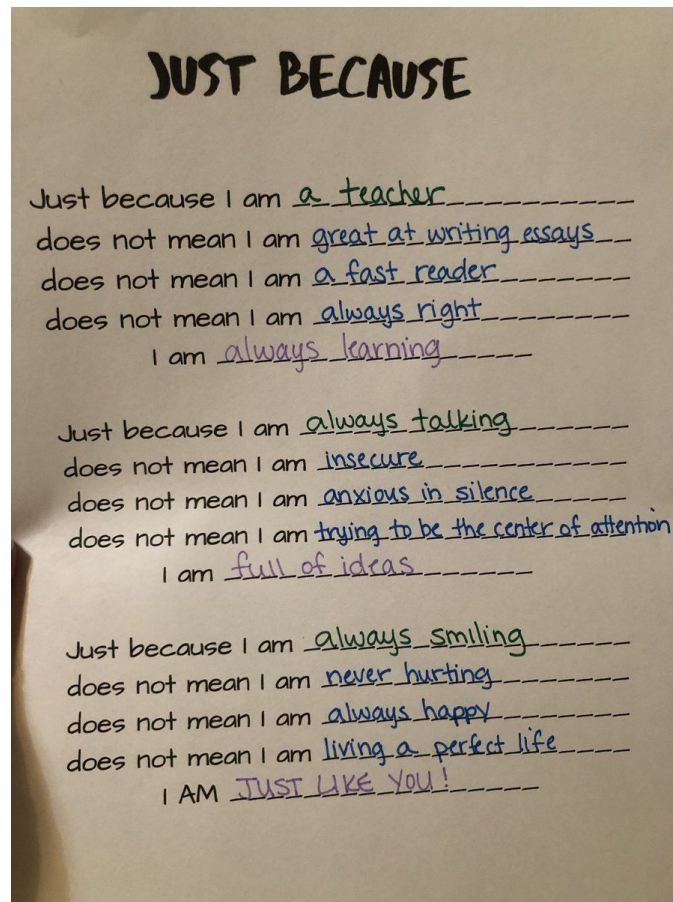 JUST BECAUSE
Just because I am a teacher
does not mean I am great at writing essays
does not mean I am a fast reader
does not mean I am always right
I am always learning
Just because I am always talking
does not mean I am insecure
does not mean I am anxious in silence
does not mean I am trying to be the center of attention
I am full of ideas
Just because I am always smiling
does not mean I am never hurting
does not mean I am always happy
does not mean I am living a perfect life
I AM JUST LIKE YOU!